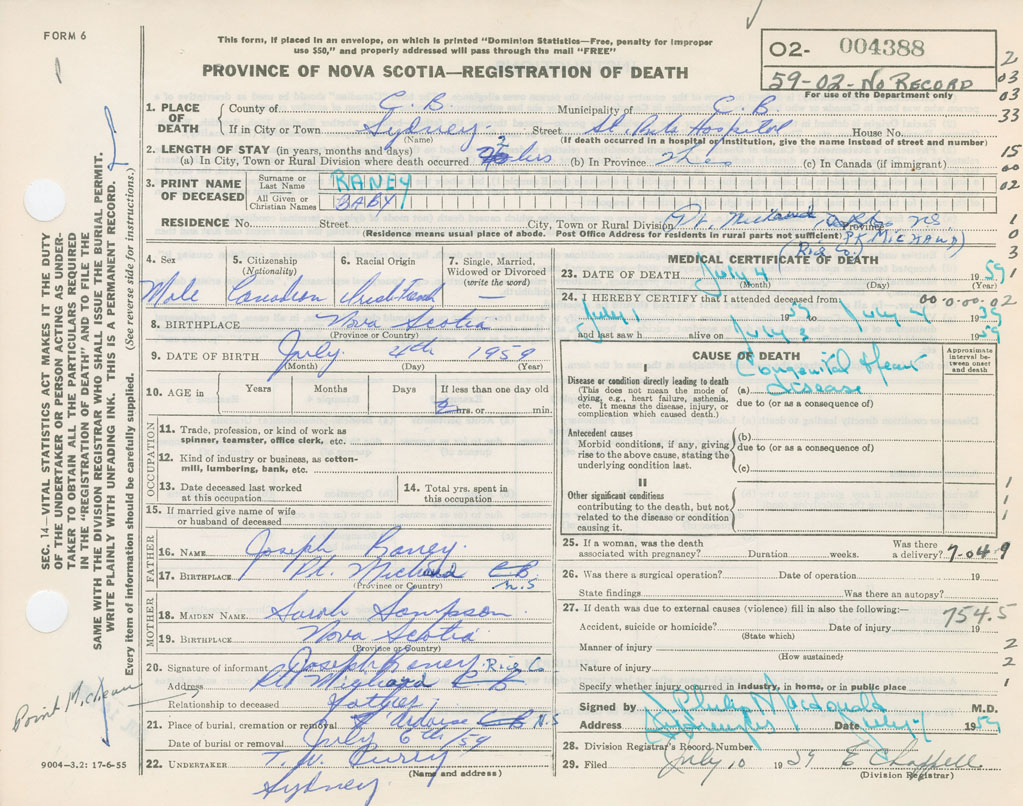 FORM 6
This form, if placed in an envelope, on which is printed "Dominion Statistics—Free, penalty for improper
use $50," and properly addressed will pass through the mail "FREE"
PROVINCE OF NOVA SCOTIA—REGISTRATION OF DEATH
O2- 004388
59-02-No RECORD
For use of the Department only
2
03
03
33
15
00
02
1
0
3
SEC. 14—VITAL STATISTICS ACT MAKES IT THE DUTY
OF THE UNDERTAKER OR PERSON ACTING AS UNDER-
TAKER TO OBTAIN ALL THE PARTICULARS REQUIRED
IN THE "REGISTRATION OF DEATH" AND TO FILE THE
SAME WITH THE DIVISION REGISTRAR WHO SHALL ISSUE THE BURIAL PERMIT.
WRITE PLAINLY WITH UNFADING INK. THIS IS A PERMANENT RECORD.
Every item of information should be carefully supplied. (See reverse side for instructions.)
1. PLACE OF DEATH
County of C. B. Municipality of C. B.
If in City or Town Sydney Street St. Rita Hospital House No.
(Name) (If death occurred in a hospital or institution, give the name instead of street and number)
2. LENGTH OF STAY (in years, months and days)
(a) In City, Town or Rural Division where death occurred 2 hrs (b) In Province 2 hrs (c) In Canada (if immigrant)
3. PRINT NAME OF DECEASED
Surname or Last Name RANEY
All Given or Christian Names BABY
RESIDENCE No. Street City, Town or Rural Division Pt. Michaud N.S. Province
(Residence means usual place of abode. Post Office Address for residents in rural parts not sufficient)
(Rich Co.)
4. Sex
Male
5. Citizenship (Nationality)
Canadian
6. Racial Origin
Irish French
7. Single, Married, Widowed or Divorced (write the word)
—
8. BIRTHPLACE Nova Scotia
(Province or Country)
9. DATE OF BIRTH July 4th 1959
(Month) (Day) (Year)
10. AGE in Years Months Days If less than one day old
2 hrs. or min.
OCCUPATION
11. Trade, profession, or kind of work as spinner, teamster, office clerk, etc.
12. Kind of industry or business, as cotton-mill, lumbering, bank, etc.
13. Date deceased last worked at this occupation
14. Total yrs. spent in this occupation
15. If married give name of wife or husband of deceased
FATHER
16. NAME Joseph Raney
17. BIRTHPLACE Pt. Michaud CB N.S
(Province or Country)
MOTHER
18. MAIDEN NAME Sarah Sampson
19. BIRTHPLACE Nova Scotia
(Province or Country)
20. Signature of informant Joseph Raney Rich Co
Address Pt Michaud C B
Relationship to deceased Father
21. Place of burial, cremation or removal L'Ardoise CB N.S
Date of burial or removal July 6th/59
22. UNDERTAKER T. W. Curry
(Name and address)
Sydney
Point Micheau
9004-3.2: 17-6-55
MEDICAL CERTIFICATE OF DEATH
23. DATE OF DEATH July 4 1959
(Month) (Day) (Year)
24. I HEREBY CERTIFY that I attended deceased from 00.0.00.02
July 1 1959 to July 4 1959
and last saw h alive on July 3 1959
CAUSE OF DEATH
Approximate interval between onset and death
I
Disease or condition directly leading to death
(This does not mean the mode of dying, e.g., heart failure, asthenia, etc. It means the disease, injury, or complication which caused death.)
(a) Congenital Heart Disease
due to (or as a consequence of)
Antecedent causes
Morbid conditions, if any, giving rise to the above cause, stating the underlying condition last.
(b)
due to (or as a consequence of)
(c)
II
Other significant conditions contributing to the death, but not related to the disease or condition causing it.
1
1
1
25. If a woman, was the death associated with pregnancy? Duration weeks. Was there a delivery? 7.04.9
26. Was there a surgical operation? Date of operation 19
State findings Was there an autopsy?
27. If death was due to external causes (violence) fill in also the following:—
754.5
Accident, suicide or homicide? Date of injury 19
(State which)
Manner of injury 2
(How sustained)
Nature of injury 2
Specify whether injury occurred in industry, in home, or in public place 1
Signed by Macdonald M.D.
Address Sydney Date July 1959
28. Division Registrar's Record Number
29. Filed July 10 1959 E Chappell
(Division Registrar)